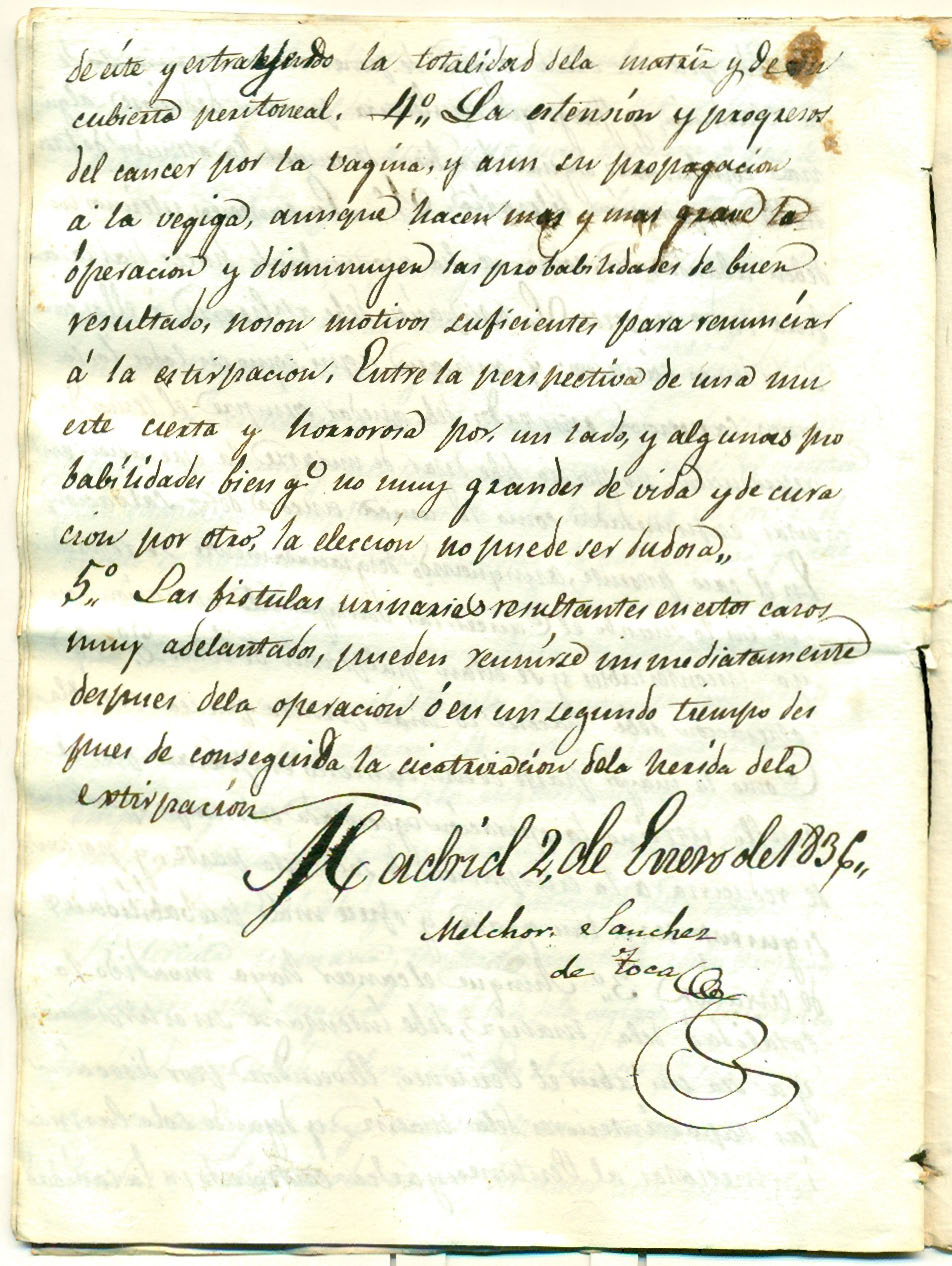 de éste y estrayendo la totalidad dela matriz y de su
cubierta peritoneal. 4º,, La estensión y progresos
del cancer por la vagina, y aun su propagacion
á la vegiga, aunque hacen mas y mas grave la
óperacion y disminuyen las probabilidades de buen
resultado, no son motivos suficientes para renunciar
á la estirpacion. Entre la perspectiva de una mu
erte cierta y horrorosa por, un lado, y algunas pro
babilidades bien qº no muy grandes de vida y de cura
cion por otro, la elección no puede ser dudosa,,
5º,, Las fistulas urinarias resultantes en estos casos
muy adelantados, pueden reunirse immediatamente
despues dela operacion ó en un segundo tiempo des
pues de conseguida la cicatrización dela herida dela
extirpación
Madrid 2, de Enero de 1836,,
Melchor. Sanchez
de Toca